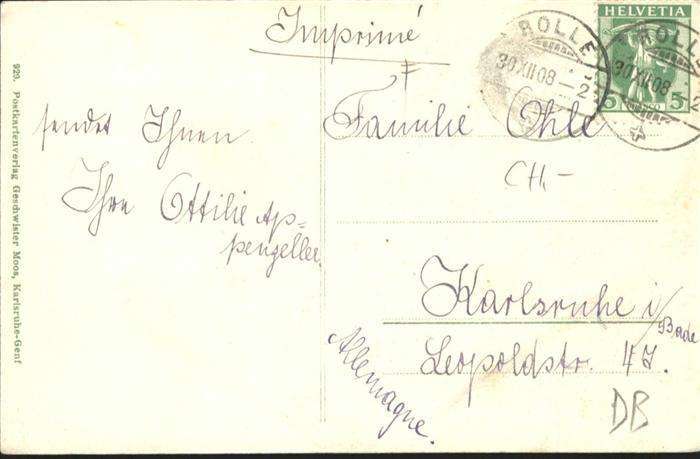 Imprimé
HELVETIA
5 5
ROLLE
30 XII 08 – 2
ROLLE
30 XII 08
929. Postkartenverlag Geschwister Moos, Karlsruhe-Genf
sendet Ihnen
Ihre Ottilie Ap-
penzeller.
Familie Ohle
CH,-
Karlsruhe i/
Bade
Leopoldstr. 47.
Allemagne.
DB